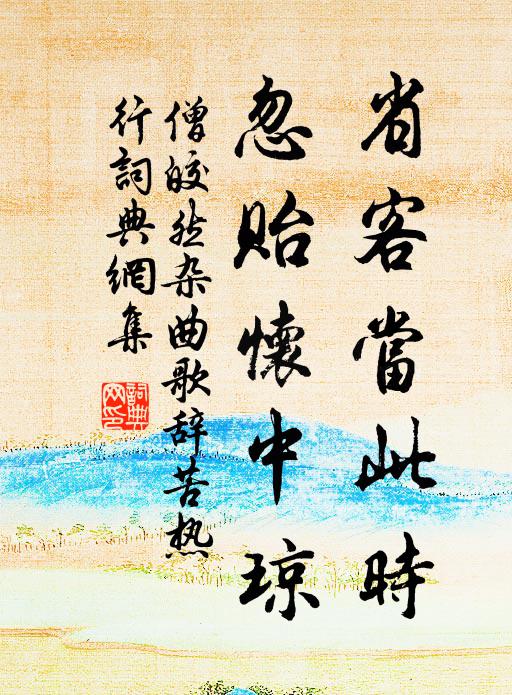 省客當此時
忽貽懷中琼
僧皎然杂曲歌辞苦热
行詞典網集
詞典
网印